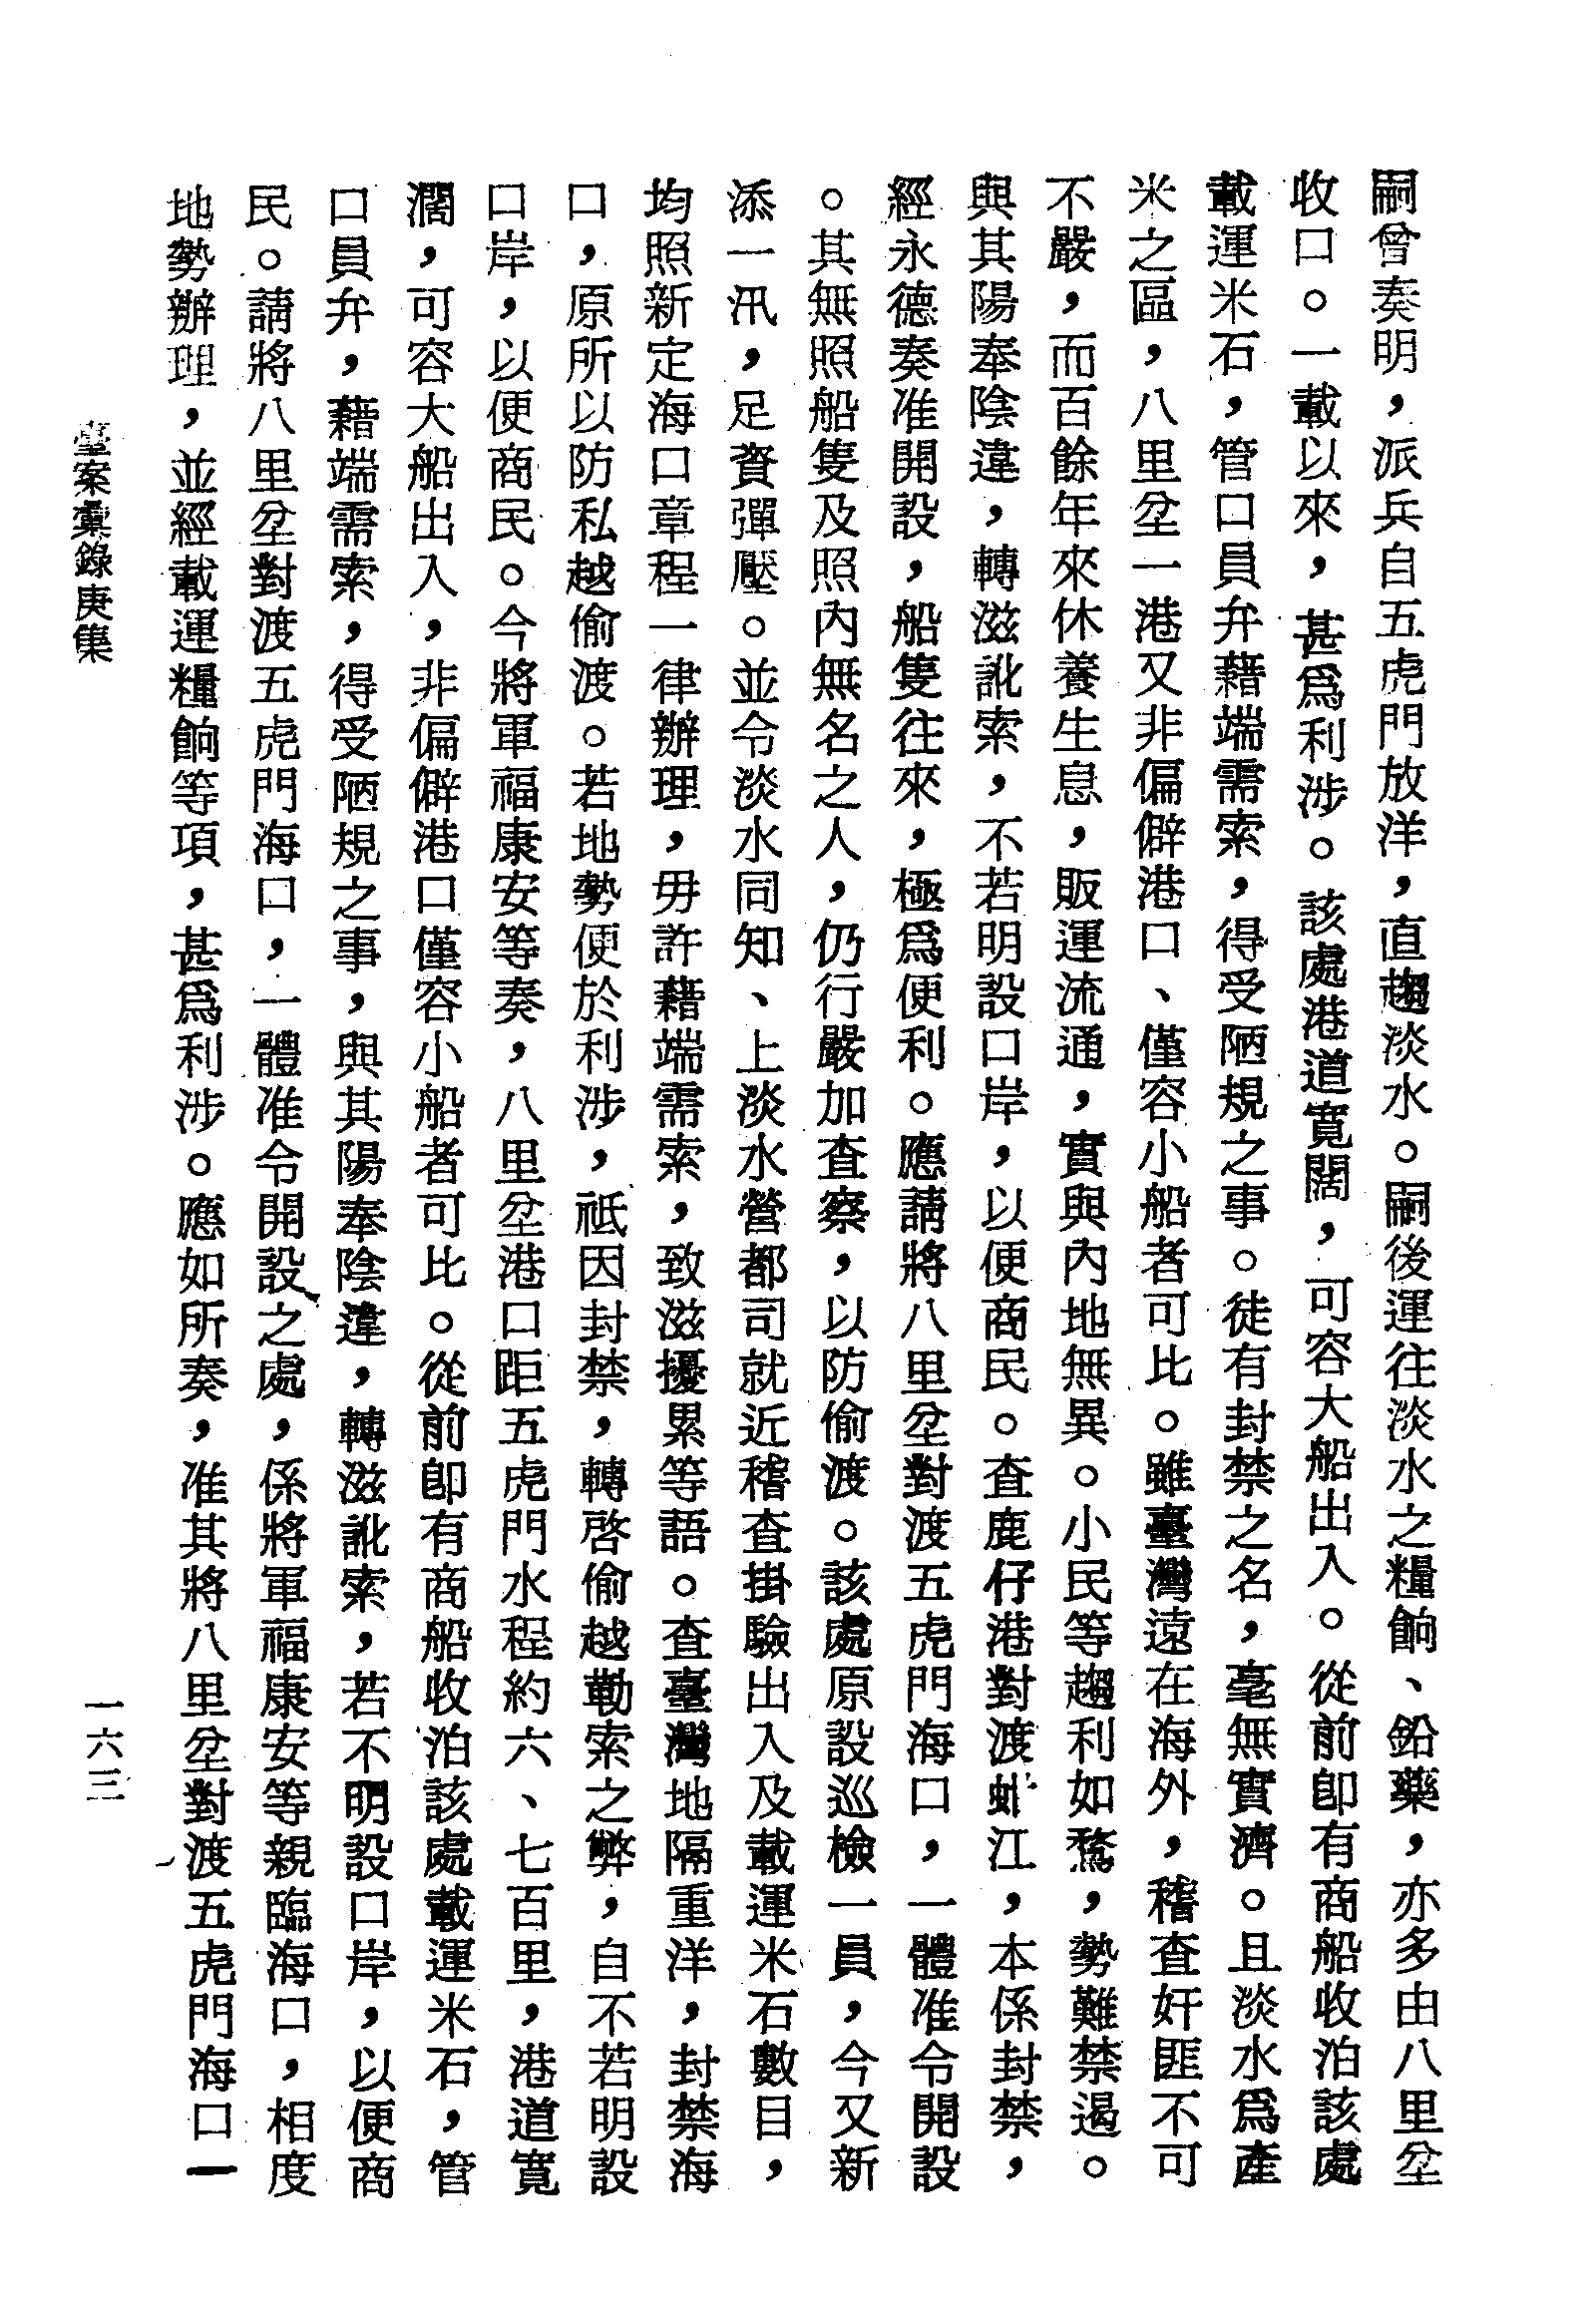 嗣曾奏明，派兵自五虎門放洋，直趨淡水。嗣後運往淡水之糧餉、鉛藥，亦多由八里坌
收口。一載以來，甚爲利涉。該處港道寬闊，可容大船出入。從前卽有商船收泊該處
載運米石，管口員弁藉端需索，得受陋規之事。徒有封禁之名，毫無實濟。且淡水爲產
米之區，八里坌一港又非偏僻港口、僅容小船者可比。雖臺灣遠在海外，稽查奸匪不可
不嚴，而百餘年來休養生息，販運流通，實與內地無異。小民等趨利如鶩，勢難禁遏。
與其陽奉陰違，轉滋訛索，不若明設口岸，以便商民。查鹿仔港對渡蚶江，本係封禁，
經永德奏准開設，船隻往來，極爲便利。應請將八里坌對渡五虎門海口，一體准令開設
。其無照船隻及照內無名之人，仍行嚴加查察，以防偷渡。該處原設巡檢一員，今又新
添一汛，足資彈壓。並令淡水同知、上淡水營都司就近稽查掛驗出入及載運米石數目，
均照新定海口章程一律辦理，毋許藉端需索，致滋擾累等語。查臺灣地隔重洋，封禁海
口，原所以防私越偷渡。若地勢便於利涉，祗因封禁，轉啓偷越勒索之弊，自不若明設
口岸，以便商民。今將軍福康安等奏，八里坌港口距五虎門水程約六、七百里，港道寬
濶，可容大船出入，非偏僻港口僅容小船者可比。從前卽有商船收泊該處載運米石，管
口員弁，藉端需索，得受陋規之事，與其陽奉陰違，轉滋訛索，若不明設口岸，以便商
民。請將八里坌對渡五虎門海口，一體准令開設之處，係將軍福康安等親臨海口，相度
地勢辦理，並經載運糧餉等項，甚爲利涉。應如所奏，准其將八里坌對渡五虎門海口一
臺案彙錄庚集
一六三